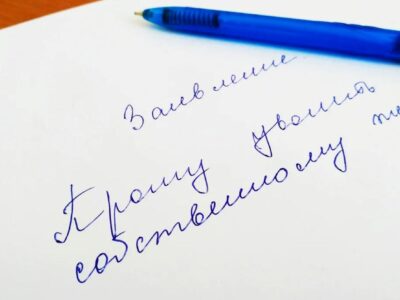 Заявление
Прошу уволить
собственному же